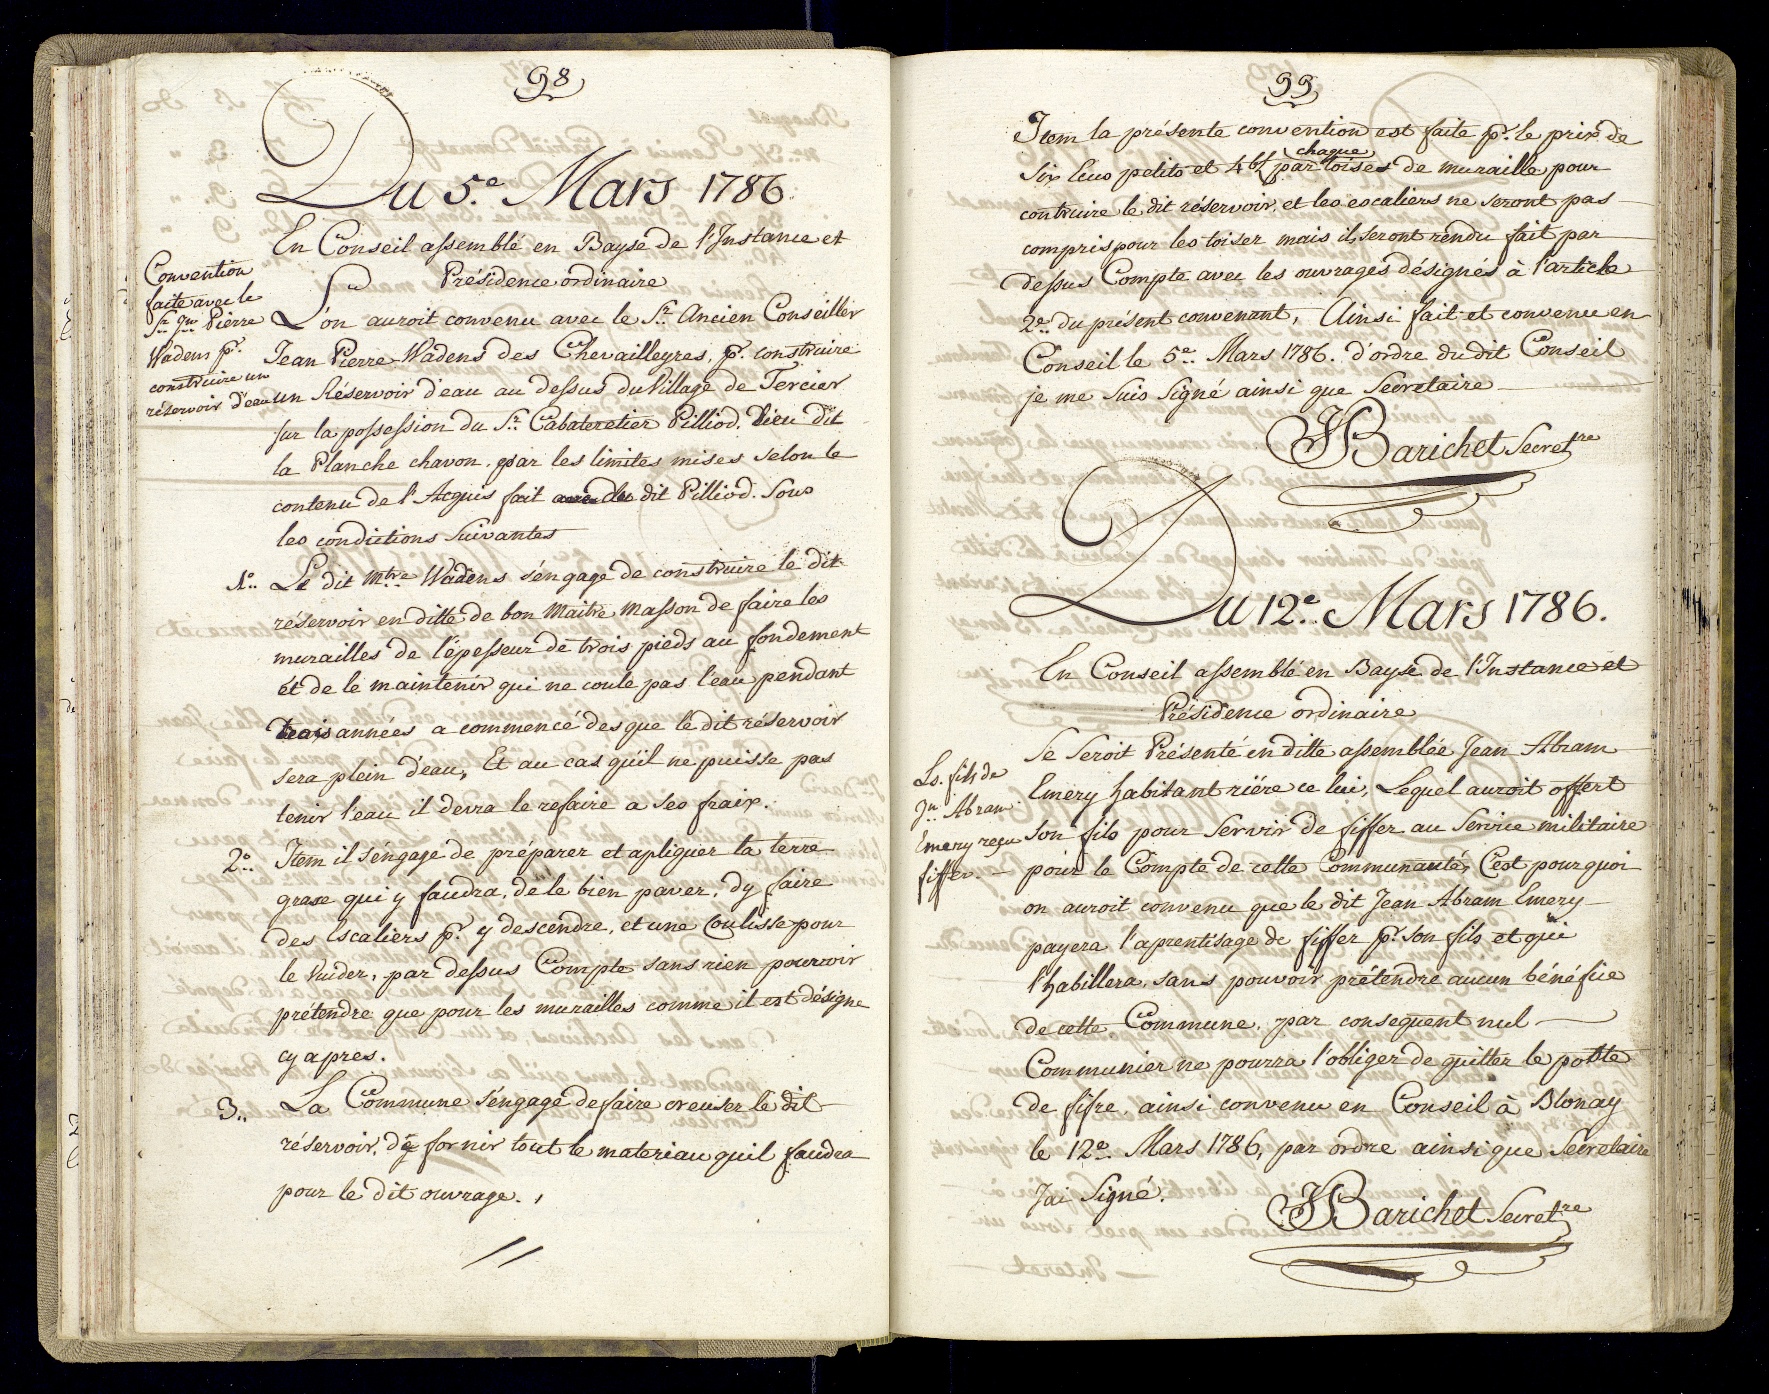 98
Du 5.e Mars 1786.
En Conseil assemblé en Bayse de l'Instance et
Présidence ordinaire
Convention
faite avec le
Sr. Jn. Pierre
Wadens pr.
construire un
réservoir d'eau
L'on auroit convenu avec le Sr. Ancien Conseiller
Jean Pierre Wadens des Chevailleyres, pr. construire
un Réservoir d'eau au dessus du Village de Tercier
sur la possession du Sr. Cabaretier Pilliod. Lieu dit
la Planche chavon. par les limites mises selon le
contenu de l'Acquis fait dit Pilliod. Sous
les condictions Suivantes
1o. Le dit Mtre Wadens s'engage de construire le dit
réservoir en ditte de bon Maitre Masson de faire les
murailles de l'épesseur de trois pieds au fondement
et de le maintenir qui ne coule pas l'eau pendant
trois années a commencé des que le dit réservoir
sera plein d'eau, Et au cas qu'il ne puisse pas
tenir l'eau il devra le refaire a ses fraix.
2o. Item il s'engage de préparer et apliquer la terre
grase qui y faudra, de le bien paver, dy faire
des Escaliers pr. y descendre, et une Coulisse pour
le Vuider, par dessus Compte sans rien pouvoir
prétendre que pour les murailles comme il est désigne
cy apres.
3.. La Commune s'engage de faire creuser le dit
réservoir, de fornir tout le materiau quil faudra
pour le dit ouvrage.
99
Item la présente convention est faite pr. le prix de
chaque
Six Ecus petits et 4 bz par toises de muraille pour
contruire le dit réservoir, et les escaliers ne seront pas
compris pour les toiser mais ils seront rendu fait par
dessus Compte avec les ouvrages désignés à l'article
2e. du présent convenant, Ainsi fait et convenu en
Conseil le 5e. Mars 1786. d'ordre du dit Conseil
je me Suis Signé ainsi que Secretaire
JS Barichet Secretre
Du 12.e Mars 1786.
En Conseil assemblé en Bayse de l'Instance et
Présidence ordinaire
Ls. fils de
Jn. Abram
Emery reçu
fiffer.
Se Seroit Présenté en ditte assemblée Jean Abram
Emery habitant riére ce lui, Lequel auroit offert
Son fils pour Servir de fiffer au Service militaire
pour le Compte de cette Communauté, C'est pourquoi
on auroit convenu que le dit Jean Abram Emery
payera l'aprentisage de fiffer pr. Son fils et qui
l'habillera, sans pouvoir prétendre aucun bénéfice
de cette Commune, par consequent nul
Communier ne pourra l'obliger de quitter le poste
de fifre, ainsi convenu en Conseil à Blonay
le 12e. Mars 1786, par ordre ainsi que Secretaire
J'ai Signé.
JS Barichet Secretre